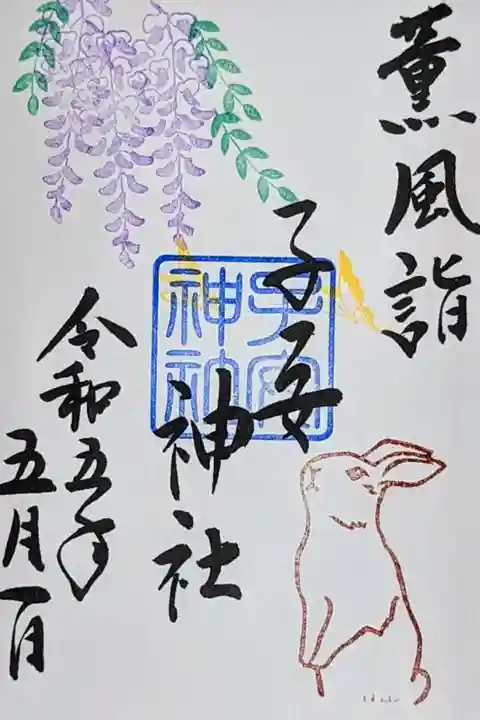 薫風詣
子安神社
子安神社
令和五年
五月一日